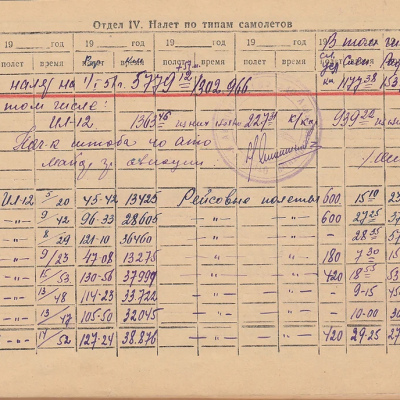 Отдел IV. Налет по типам самолетов
19 год 19 год 19 год 19 год В том чис
полет время полет время полет время Слеп
налет на 1/I 51г. 5779 12 1302.966 1177 38 153
том числе:
ИЛ-12 1363 45 из них ночью 227 31 939 22
Нач-к штаба 40 ато
майор авиации
ИЛ-12 5/20 45-42 13425 Рейсовые полеты 600 15 10
-"- 9/42 96-33 28605 -"- -"- 600 27 25
-"- 8/29 121-10 36460 -"- -"- - 28 35
-"- 9/23 47-08 13275 -"- -"- 180 7 30
-"- 15/53 130-56 37999 -"- -"- 420 18 55
-"- 13/48 114-23 33.722 -"- -"- - 9-15 45
-"- 13/47 105-50 32045 -"- -"- - 10-00 30
-"- 14/52 127-24 38.876 -"- -"- 420 29-25 27